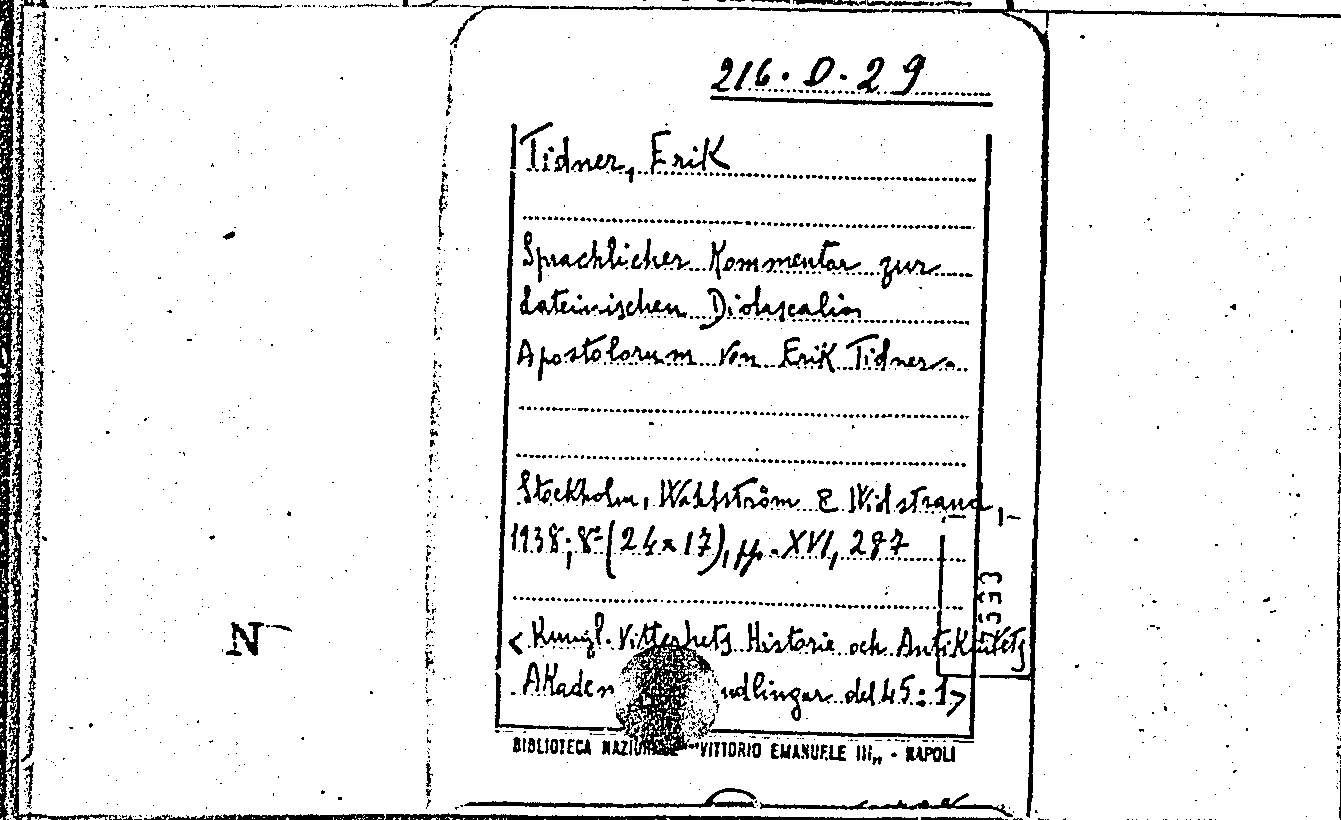 216. D. 29
Tidner, Erik
Sprachlicher Kommentar zur
Lateinischen Didascalia
Apostolorum von Erik Tidner.
Stockholm, Wahlström & Widstrand,
1938; 8° (24x17), pp. XVI, 287
< Kungl. Vitterhets Historie och Antikvitets
Akaden ndlingar del 45: 1>
5333
BIBLIOTECA NAZIONALE "VITTORIO EMANUELE III„ - NAPOLI
N